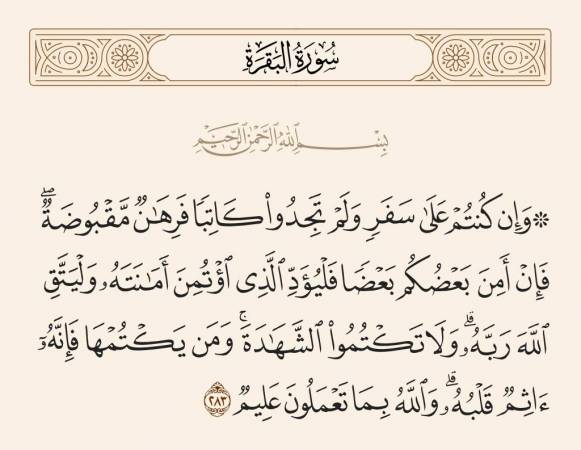 سُورَةُ البَقَرَةِ
بِسْمِ ٱللَّهِ ٱلرَّحْمَٰنِ ٱلرَّحِيمِ
۞ وَإِن كُنتُمْ عَلَىٰ سَفَرٍ وَلَمْ تَجِدُوا۟ كَاتِبًا فَرِهَـٰنٌ مَّقْبُوضَةٌ ۖ
فَإِنْ أَمِنَ بَعْضُكُم بَعْضًا فَلْيُؤَدِّ ٱلَّذِى ٱؤْتُمِنَ أَمَـٰنَتَهُۥ وَلْيَتَّقِ
ٱللَّهَ رَبَّهُۥ ۗ وَلَا تَكْتُمُوا۟ ٱلشَّهَـٰدَةَ ۚ وَمَن يَكْتُمْهَا فَإِنَّهُۥٓ
ءَاثِمٌ قَلْبُهُۥ ۗ وَٱللَّهُ بِمَا تَعْمَلُونَ عَلِيمٌ ٢٨٣